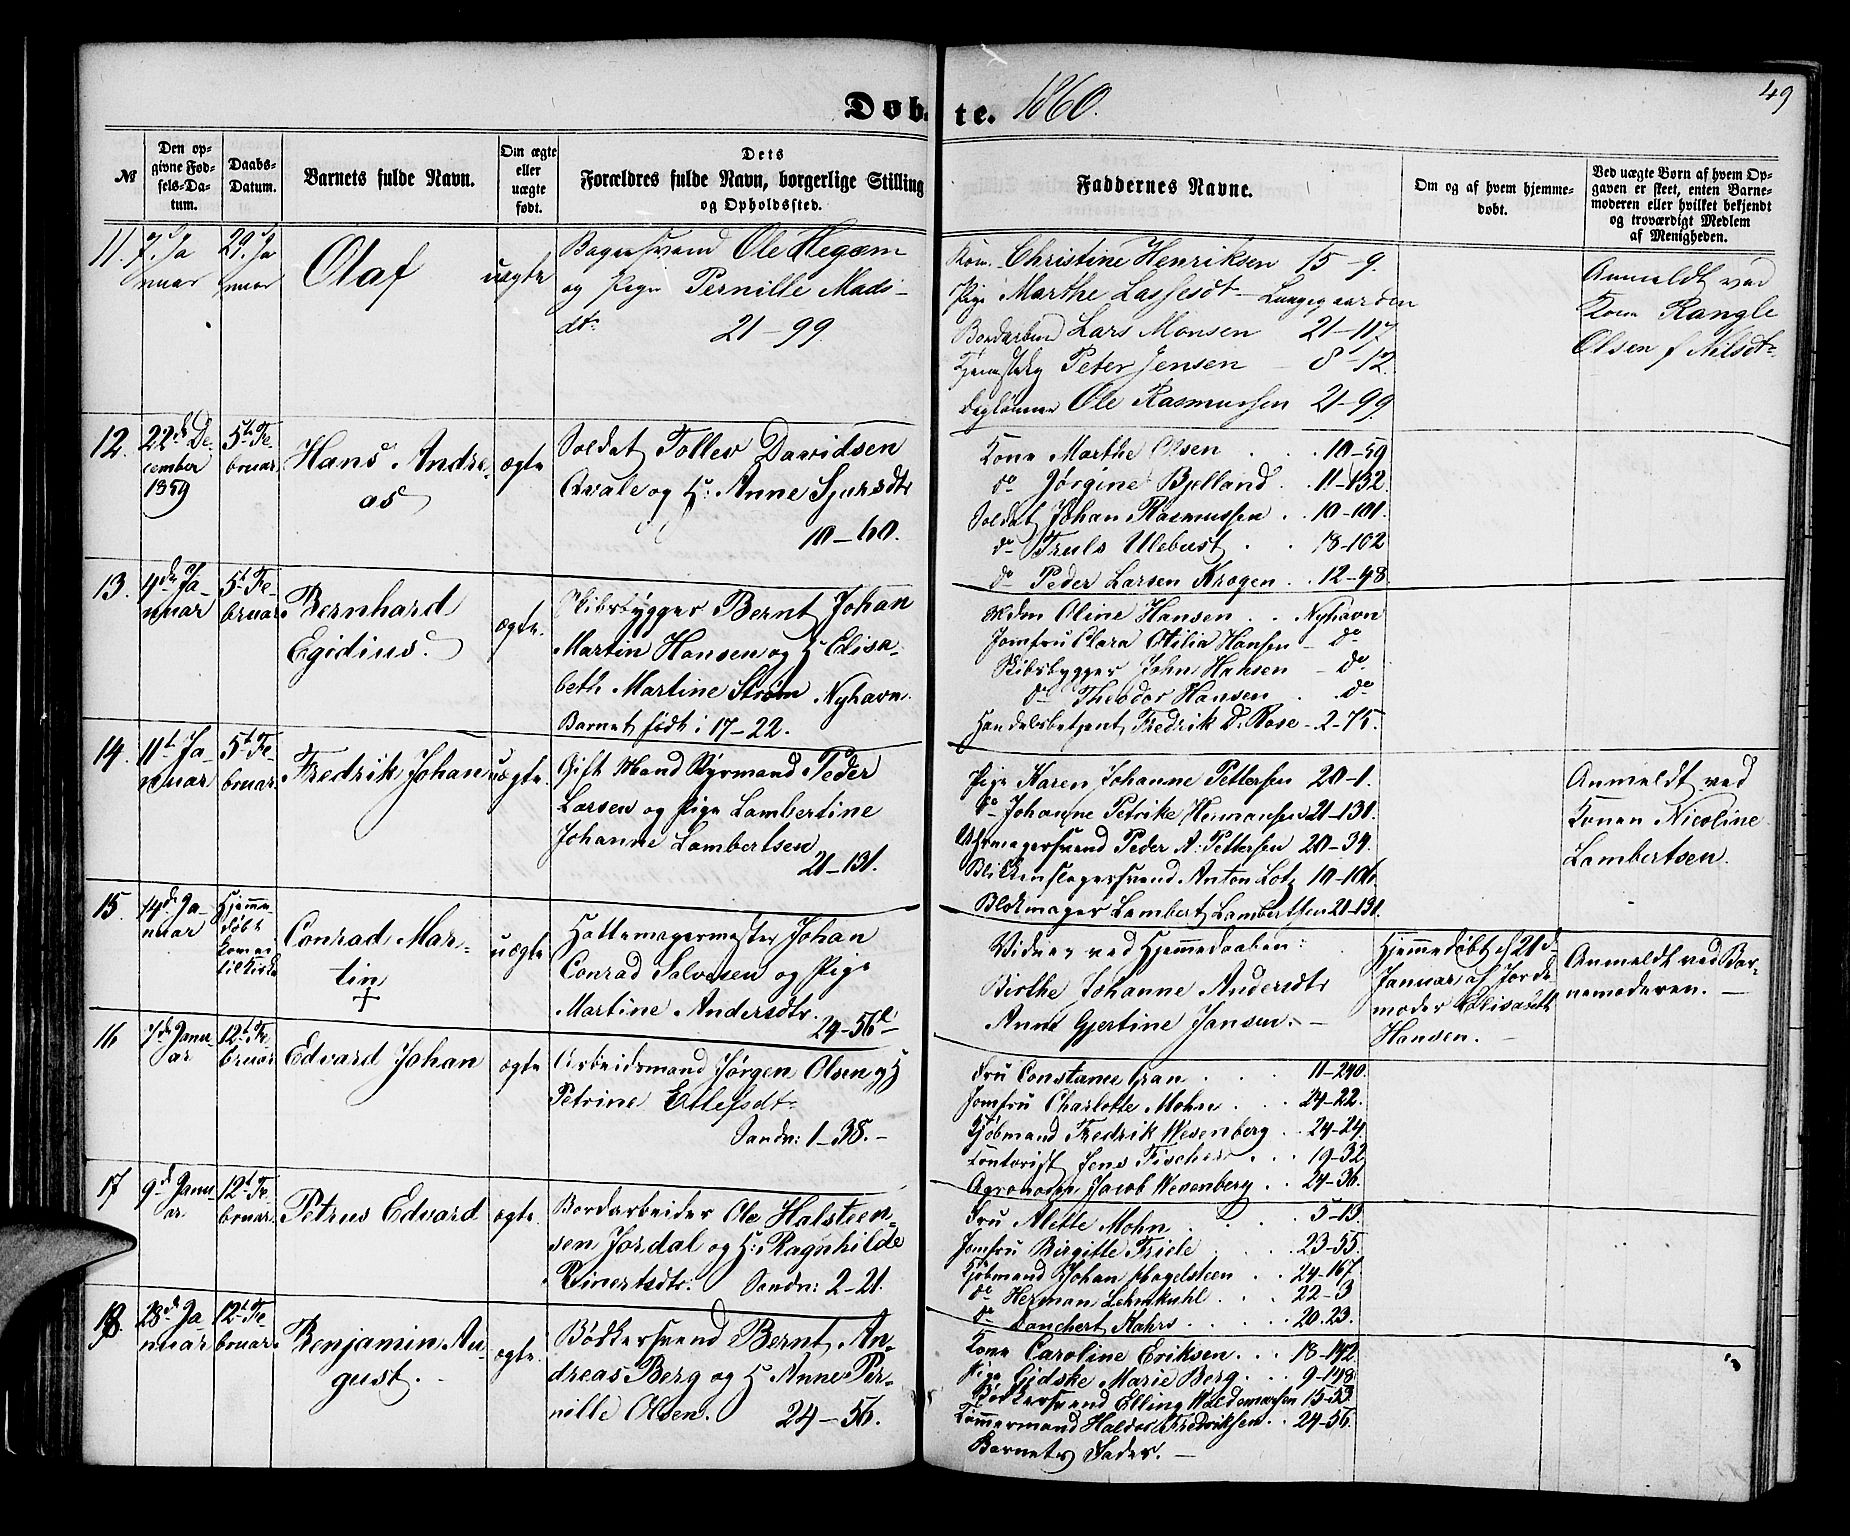 Døbte. 1860.
49
№
Den op-
givne Fød-
sels-Da-
tum.
Daabs-
Datum.
Barnets fulde Navn.
Om ægte
eller
uægte
født.
Dets
Forældres fulde Navn, borgerlige Stilling
og Opholdssted.
Faddernes Navne.
Om og af hvem hjemme-
døbt.
Ved uægte Børn af hvem Op-
gaven er skeet, enten Barne-
moderen eller hvilket bekjendt
og troværdigt Medlem
af Menigheden.
11. 7. Ja
nuar
29. Ja
nuar
Olaf
uægte
Bagersvend Ole Hegom
og Pige Pernille Mads-
dtr 21-99.
Kone Christine Henriksen 15-9.
Pige Marthe Lassesdt- Lungegaarden
Bordarbeid Lars Monsen 21-117.
Peter Jensen 8-12.
Daglønner Ole Rasmussen 21-99.
Anmeldt ved
Kone Rangle
Olsen f Nilsdt-
12. 22d De-
cember
1859
5t Fe
bruar
Hans Andre-
as
ægte
Soldat Tollev Davidsen
Qvale og H: Anne Sjursdtr
10-60.
Kone Marthe Olsen . . 10-59
do Jørgine Bjelland . 11-132.
Soldat Johan Rasmussen . . 10-101.
do Truls Ulebust . . 18-102
do Peder Larsen Krogen . . 12-48.
13. 4de Ja-
nuar
5t Fe-
bruar
Bernhard
Egidius.
ægte.
Skibsbygger Bernt Johan
Martin Hansen og H Elisa-
beth Martine Strøm Nyhavn.
Barnet født i 17-22.
Mdm Oline Hansen . . Nyhavn
Jomfru Clara Otilia Hansen - do
Skibsbygger John Hansen - do
do Theodor Hansen . do
Handelsbetjent Fredrik D. Rose - 2-75.
14. 11t Ja-
nuar
5t Fe
bruar
Fredrik Johan
uægte.
Gift Mand Styrmand Peder
Larsen og Pige Lambertine
Johanne Lambertsen
21-131.
Pige Karen Johanne Pettersen 20-1.
do Johanne Petrike Hermansen 21-131.
Uhrmagersvend Peder A. Pettersen 20-34.
Blikkenslagersvend Anton Lotz 10-106
Blokmager Lambert Lambertsen 21-131.
Anmeldt ved
Konen Nicoline
Lambertsen.
15. 14d Ja-
nuar
Hjemme
døbt
kom ei
til Kirke
Conrad Mar-
tin
+
uægte
Hattemagermester Johan
Conrad Salvesen og Pige
Martine Andersdtr.
24-56b
Vidner ved Hjemmedaaben:
Birthe Johanne Andersdtr
Anne Gjertine Jansen. -
Hjemmedøbt d 21d
Januar af Jorde
moder Elisabeth
Hansen. -
Anmeldt ved Bar-
nemoderen. -
16 7d Janu-
ar
12t Fe-
bruar
Edvard Johan
ægte
Arbeidsmand Jørgen Olsen og H
Petrine Ellefsdt-
Sandv: 1-38. -
Fru Constance Gran . . . 11-240.
Jomfru Charlotte Mohn . . . 24-22.
Kjøbmand Fredrik Wesenberg . . 24-24
Contorist Jens Fischer . . . 19-32
Agronom Jacob Wesenberg . . 24-36.
17 9d Janu-
ar
12t Fe
bruar
Petrus Edvard
ægte.
Bordarbeider Ole Halsteen-
sen Jordal og H: Ragnhilde
Reinertsdtr. Sandv: 2-21.
Fru Alette Mohn . . . . 5-13.
Jomfru Birgitte Friele . . . 23-55.
Kjøbmand Johan Hagelsteen . . 24-167
do Herman Lehmkuhl . . . 22-3
do Danchert Kahrs . . . . . 20.23.
18. 28d Ja-
nuar
12t Fe
bruar
Benjamin Au-
gust. -
ægte.
Bødkersvend Bernt An-
dreas Berg og H Anne Per-
nille Olsen. 24-56.
Kone Caroline Eriksen . . . 18-142
Pige Gidske Marie Berg . . 9-148
Bødkersvend Elling Waldemarsen 15-53
Tømmermand Haldor Fredriksen . . 24-56.
Barnets Fader. -